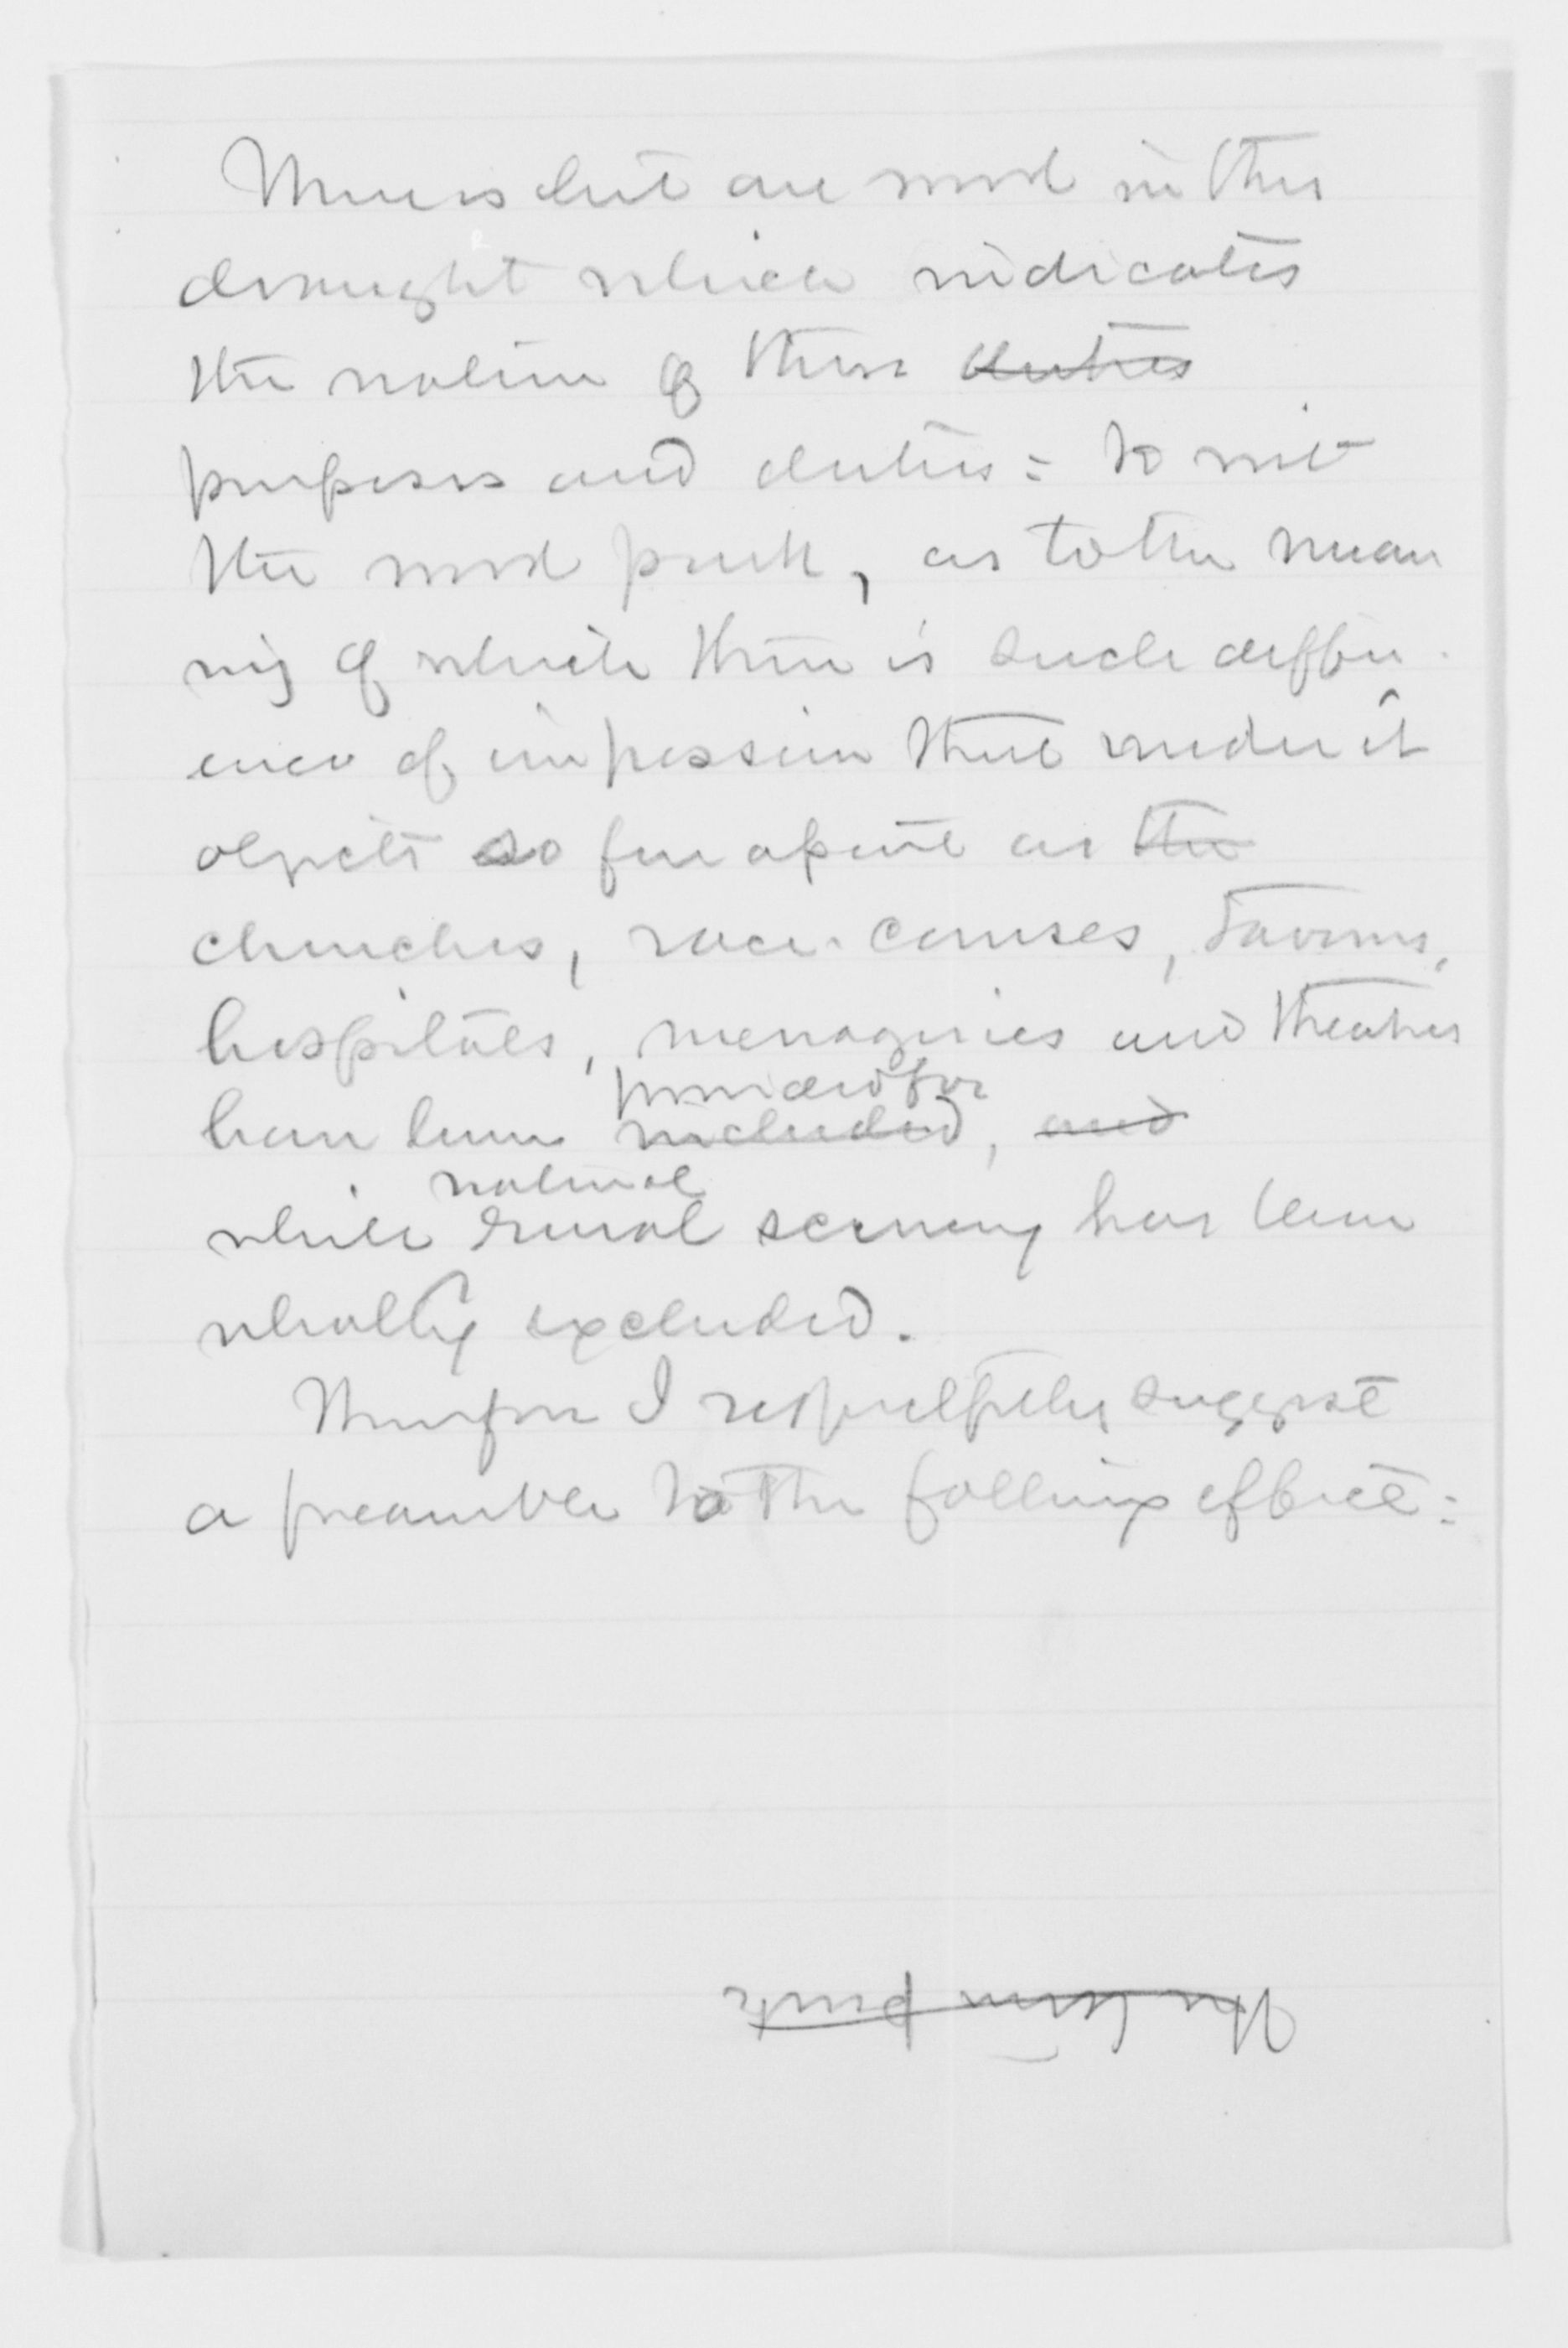 There is but one word in this
draught which indicates
the nature of these duties
purposes and duties: to wit
the word park, as to the mean
ing of which there is such differ-
ence of impression that under it
objects so far apart as the
churches, race-courses, taverns,
hospitals, menageries and theatres
provided for
have been included, and
natural
while rural scenery has been
wholly excluded.
Therefore I respectfully suggest
a preamble to the following effect:
The term park